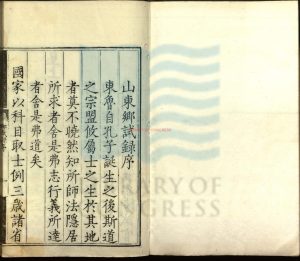 山東鄉試錄序
東魯自孔子誕生之後斯道
之宗盟攸屬士之生於其地
者莫不曉然知所師法隱居
所求者舍是弗志行義所達
者舍是弗道矣
國家以科目取士例三歲諸省
LIBRARY OF
CONGRESS